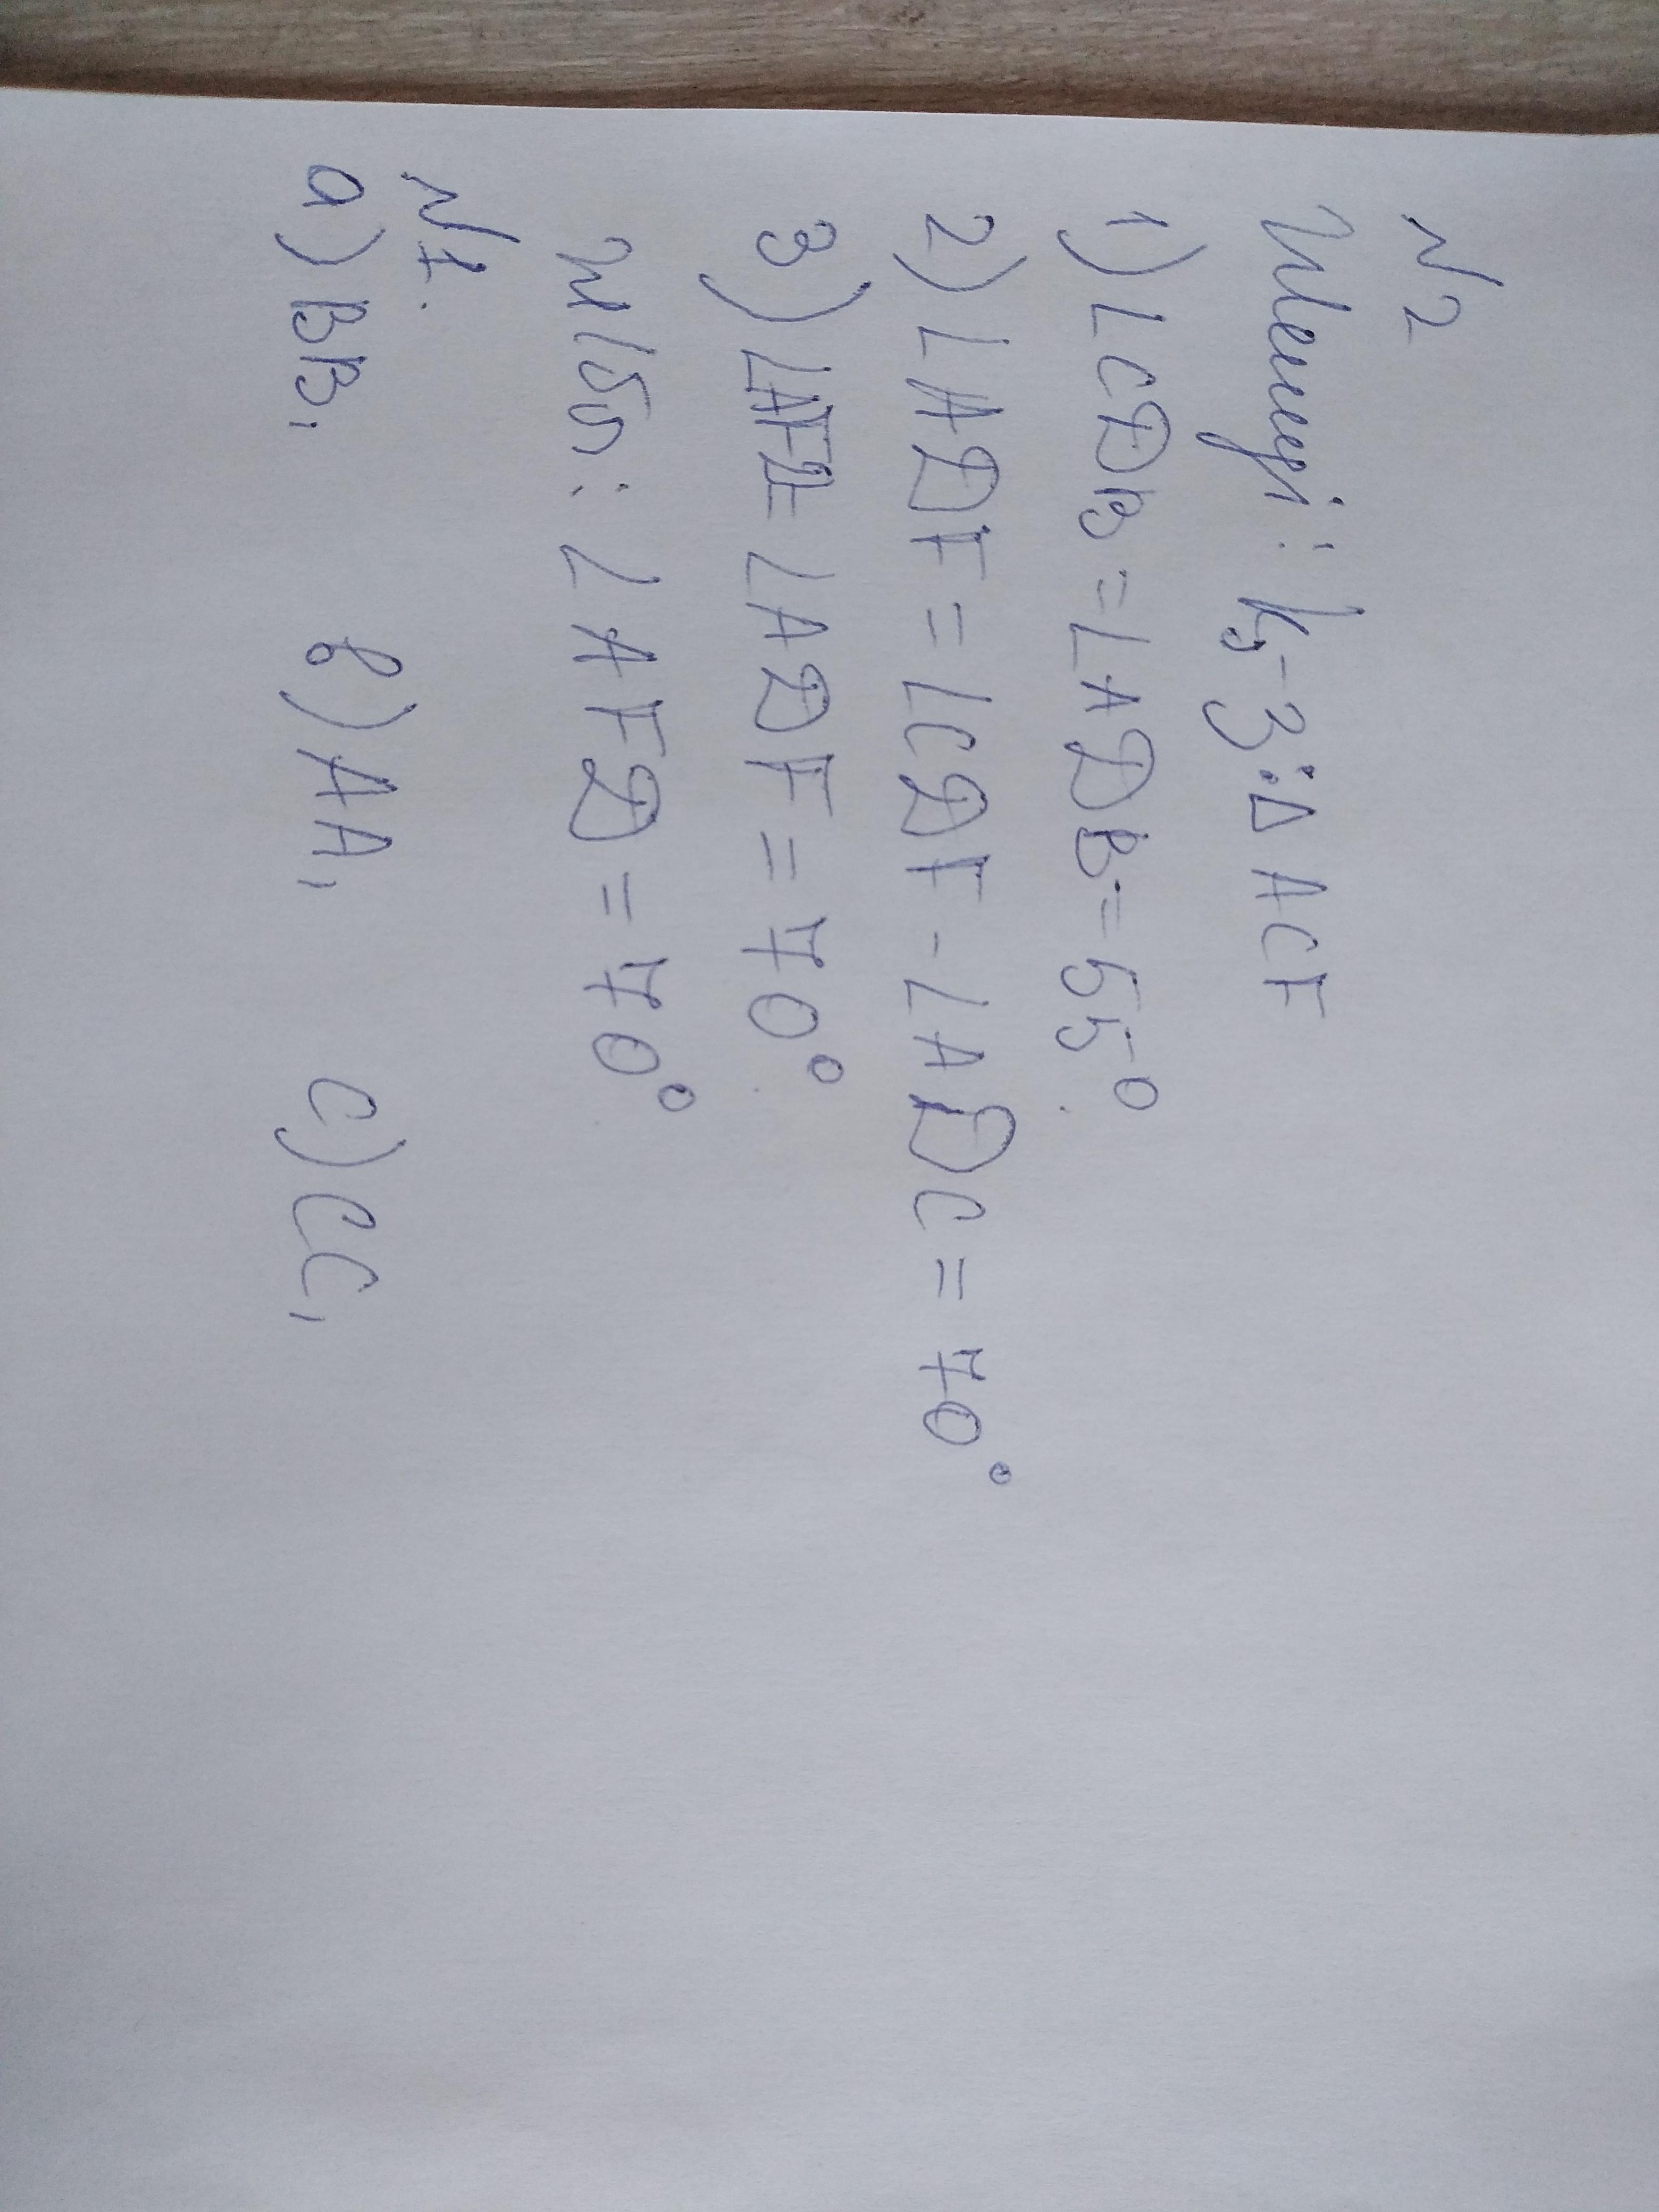 №2
Шешуі: b-3: ΔACF
1) ∠CDB = ∠ADB = 55°
2) ∠ADF = ∠CDF - ∠ADC = 70°
3) ∠AFD = ∠ADF = 70°
: ∠AFD = 70°
№1.
a) BB₁ в) AA₁ c) CC₁